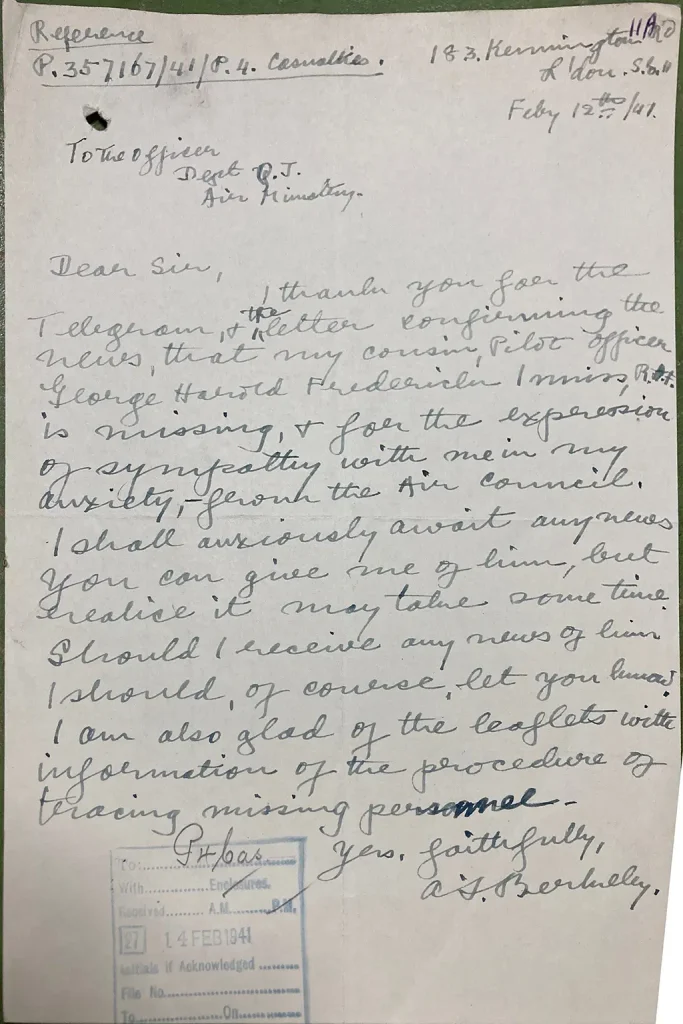 11A
Reference
P.357167/41/P.4. Casualties.
183. Kennington Rd
L'don. S.E.11
Feby 12th /41.
To the Officer
Dept Q.J.
Air Ministry.
Dear Sir,
I thank you for the
Telegram, & the letter confirming the
news, that my cousin, Pilot Officer
George Harold Frederick Inniss, R.A.F.
is missing, & for the expression
of sympathy with me in my
anxiety, - from the Air Council.
I shall anxiously await any news
you can give me of him, but
realice it may take some time.
Should I receive any news of him
I should, of course, let you know.
I am also glad of the leaflets with
information of the procedure of
tracing missing personnel -
Yrs. faithfully,
A.S. Berkeley.
P4 Cas
To:
With........Enclosures.
Received........A.M........P.M.
27 14 FEB 1941
Initials if Acknowledged
File No.
To........On